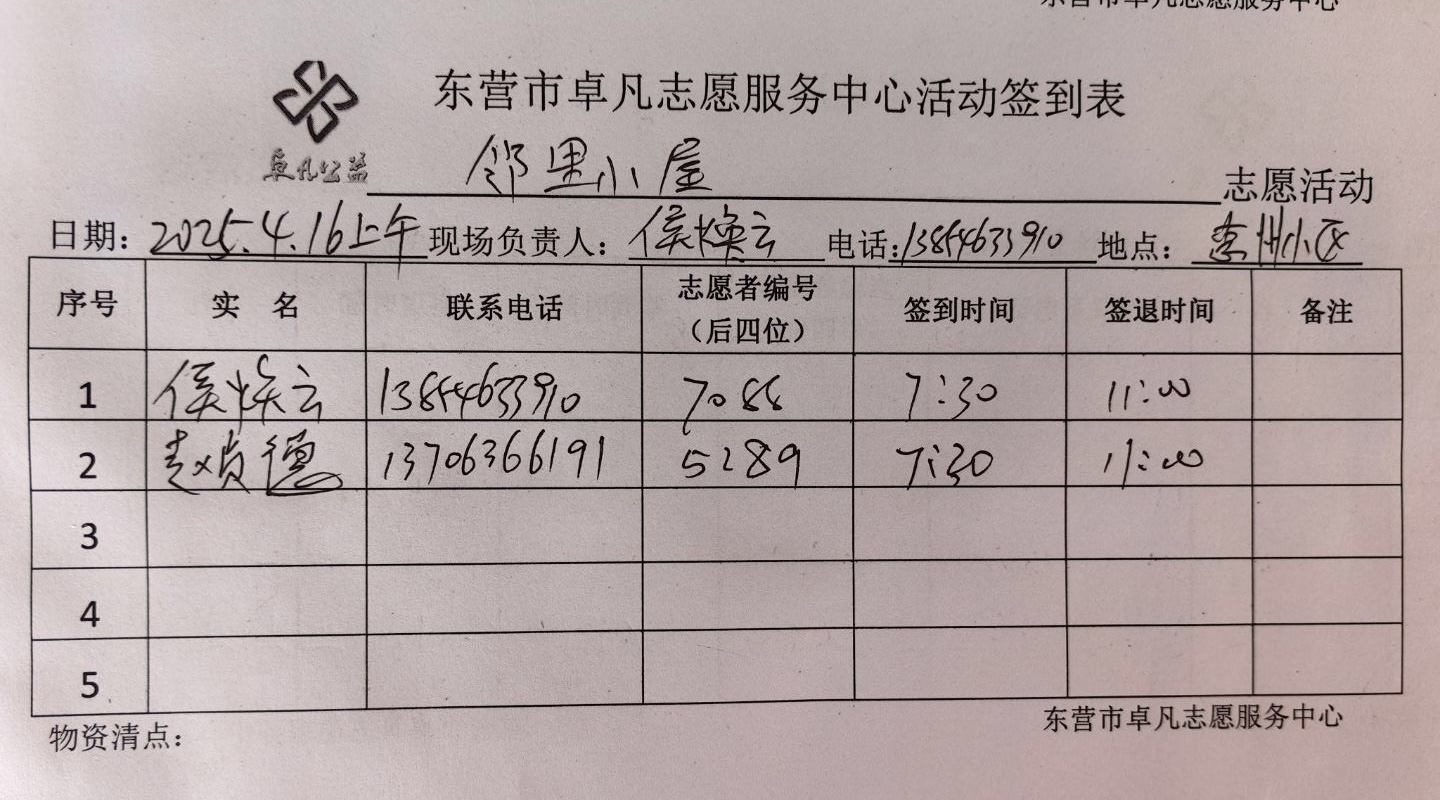 东营市卓凡志愿服务中心
东营市卓凡志愿服务中心活动签到表
卓凡公益 邻里小屋 志愿活动
日期: 2025.4.16上午 现场负责人: 侯焕云 电话: 13854633910 地点: 州小区
序号 实 名 联系电话 志愿者编号(后四位) 签到时间 签退时间 备注
1 侯焕云 13854633910 7088 7:30 11:00
2 赵 德 13706366191 5289 7:30 11:00
3
4
5
物资清点: 东营市卓凡志愿服务中心